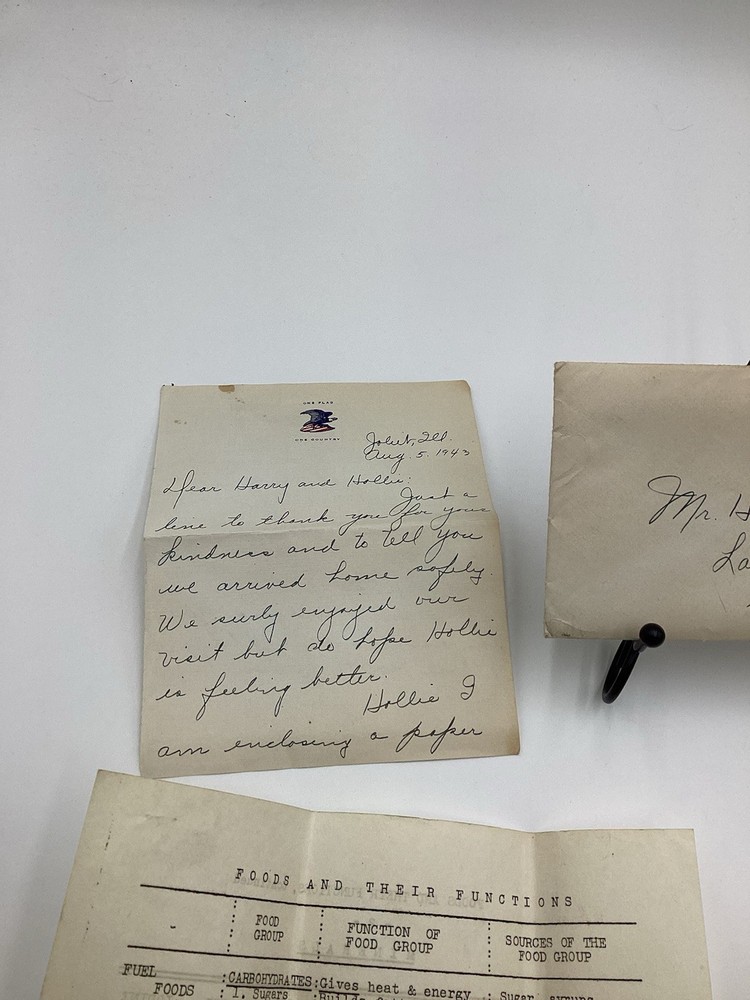 ONE FLAG
ONE COUNTRY
Joliet, Ill.
Aug. 5. 1943
Dear Harry and Hollie:
Just a
line to thank you for your
kindness and to tell you
we arrived home safely.
We surly enjoyed our
visit but do hope Hollie
is feeling better.
Hollie I
am enclosing a paper
Mr. H
La
FOODS AND THEIR FUNCTIONS
FOOD GROUP
FUNCTION OF FOOD GROUP
SOURCES OF THE FOOD GROUP
FUEL FOODS
CARBOHYDRATES: Gives heat & energy
1. Sugars
Sugar, syrups